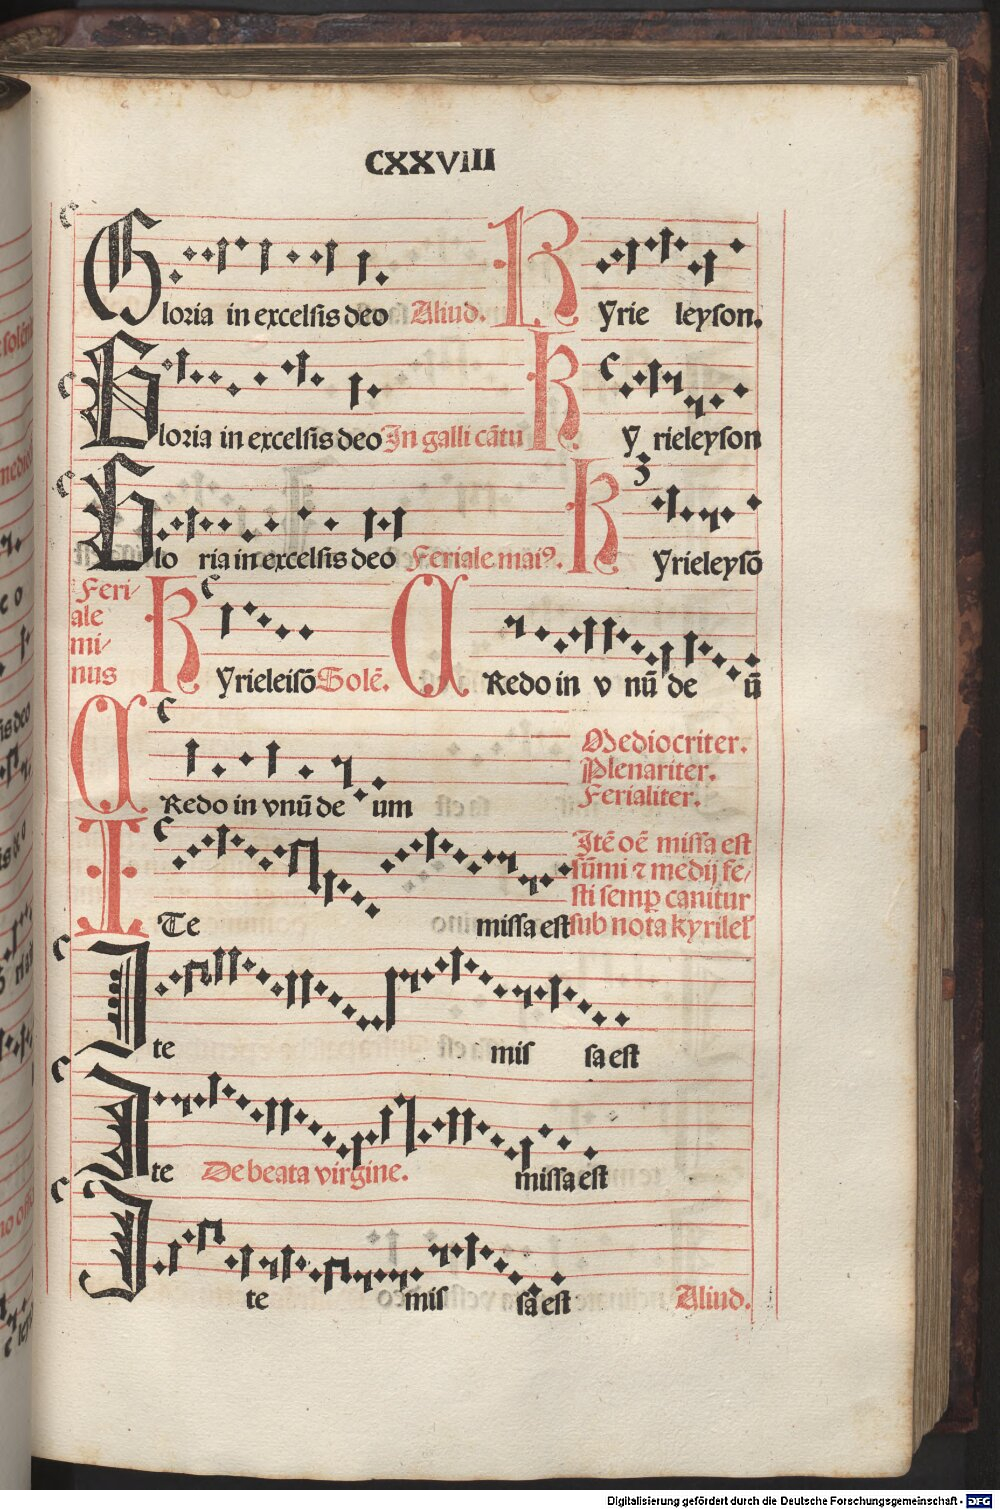 CXXViII
Gloria in excelsis deo Aliud. Kyrie leyson.
Gloria in excelsis deo In galli cātu Ky rieleyson
Glo ria in excelsis deo Feriale maiꝰ. Kyrieleysō
Feri/
ale
mi/
nus
Kyrieleisō Solē. CRedo in v nū de ū
CRedo in vnū de um
Mediocriter.
Plenariter.
Ferialiter.
ITe missa est
Itē oē missa est
sūmi ⁊ medij fe/
sti semp canitur
sub nota kyrilel
Ite mis sa est
Ite De beata virgine. missa est
Ite mis sa est Aliud.
Digitalisierung gefördert durch die Deutsche Forschungsgemeinschaft - DFG